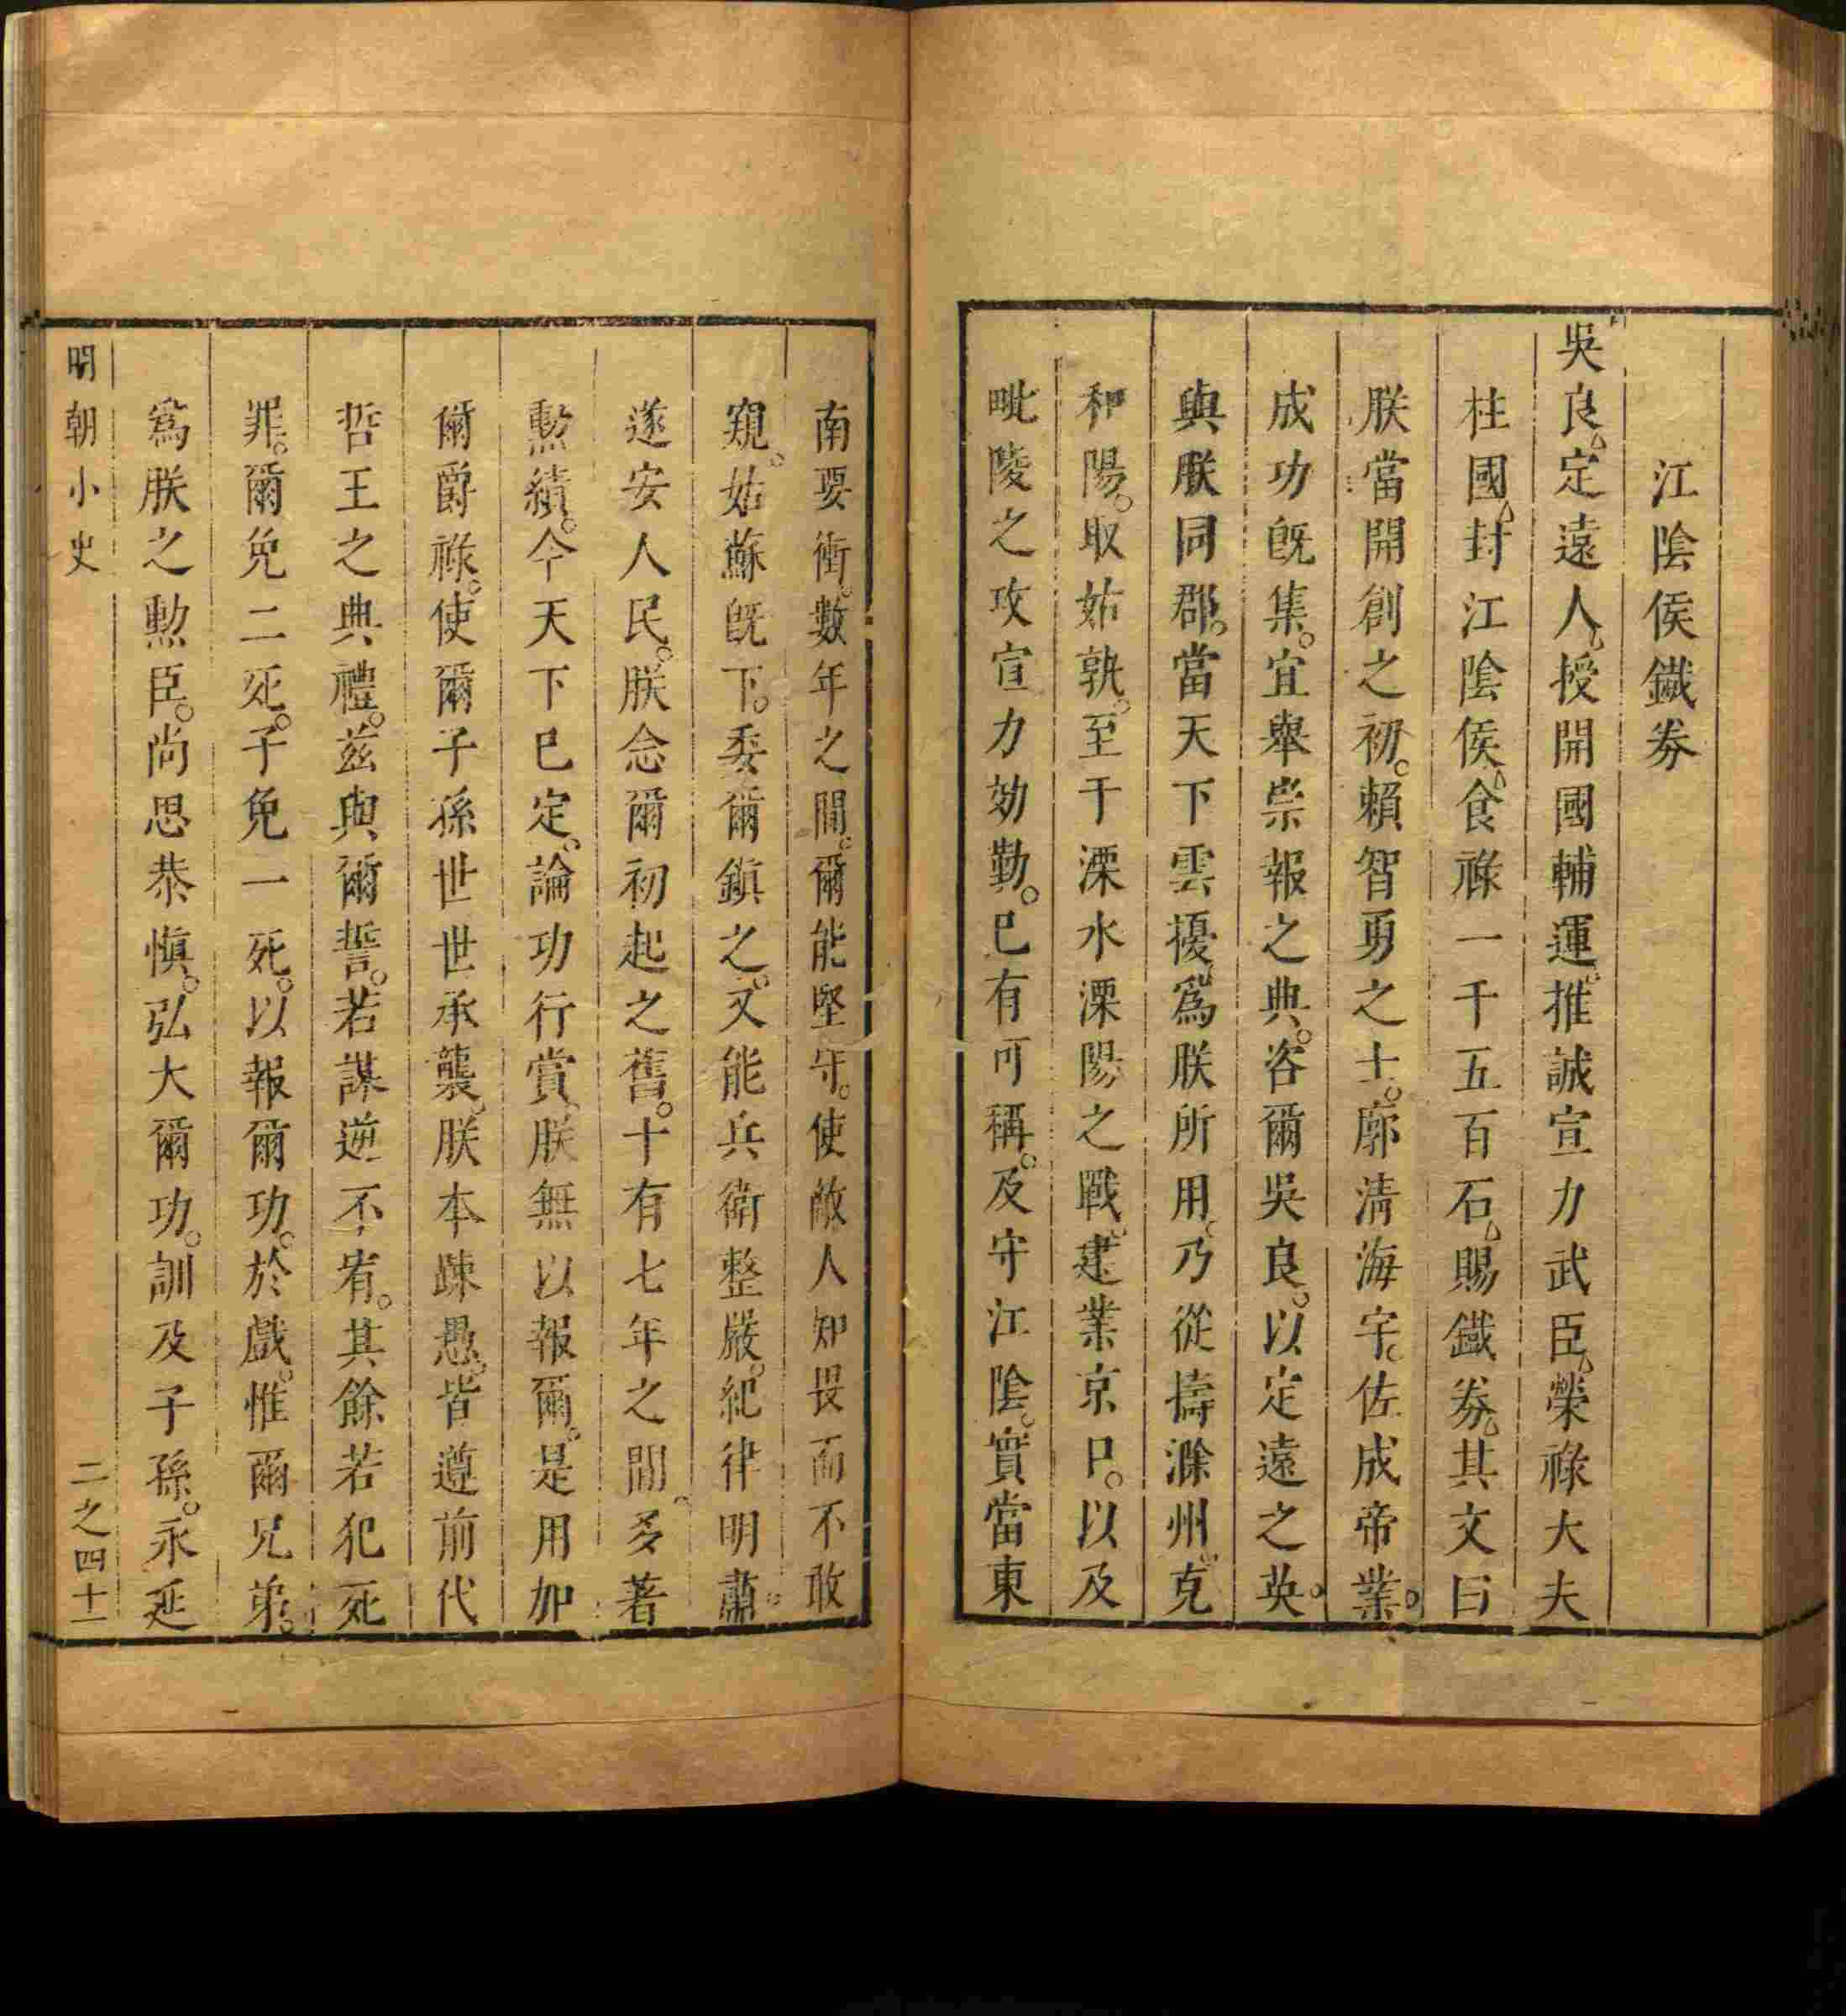 江陰侯鐵券
吳良定遠人授開國輔運推誠宣力武臣榮祿大夫
柱國封江陰侯食祿一千五百石賜鐵券其文曰
朕當開創之初。賴智勇之士。廓淸海宇。佐成帝業。
成功旣集。宜舉崇報之典。咨爾吳良。以定遠之英。
與朕同郡。當天下雲擾。爲朕所用。乃從擣滁州。克
和陽。取姑孰。至于溧水溧陽之戰。建業京口。以及
毗陵之攻宣力効勤。已有可稱。及守江陰。實當東
南要衝。數年之間。爾能堅守。使敵人知畏而不敢
窺。姑蘇旣下。委爾鎮之。又能兵衛整嚴。紀律明肅。
遂安人民。朕念爾初起之舊。十有七年之間。多著
勲績。今天下已定。論功行賞。朕無以報爾。是用加
爾爵祿。使爾子孫世世承襲。朕本疎愚。皆遵前代
哲王之典禮。兹與爾誓。若謀逆不宥。其餘若犯死
罪。爾免二死。子免一死。以報爾功。於戲。惟爾兄弟。
爲朕之勲臣。尚思恭愼。弘大爾功。訓及子孫。永延
明朝小史
二之四十一